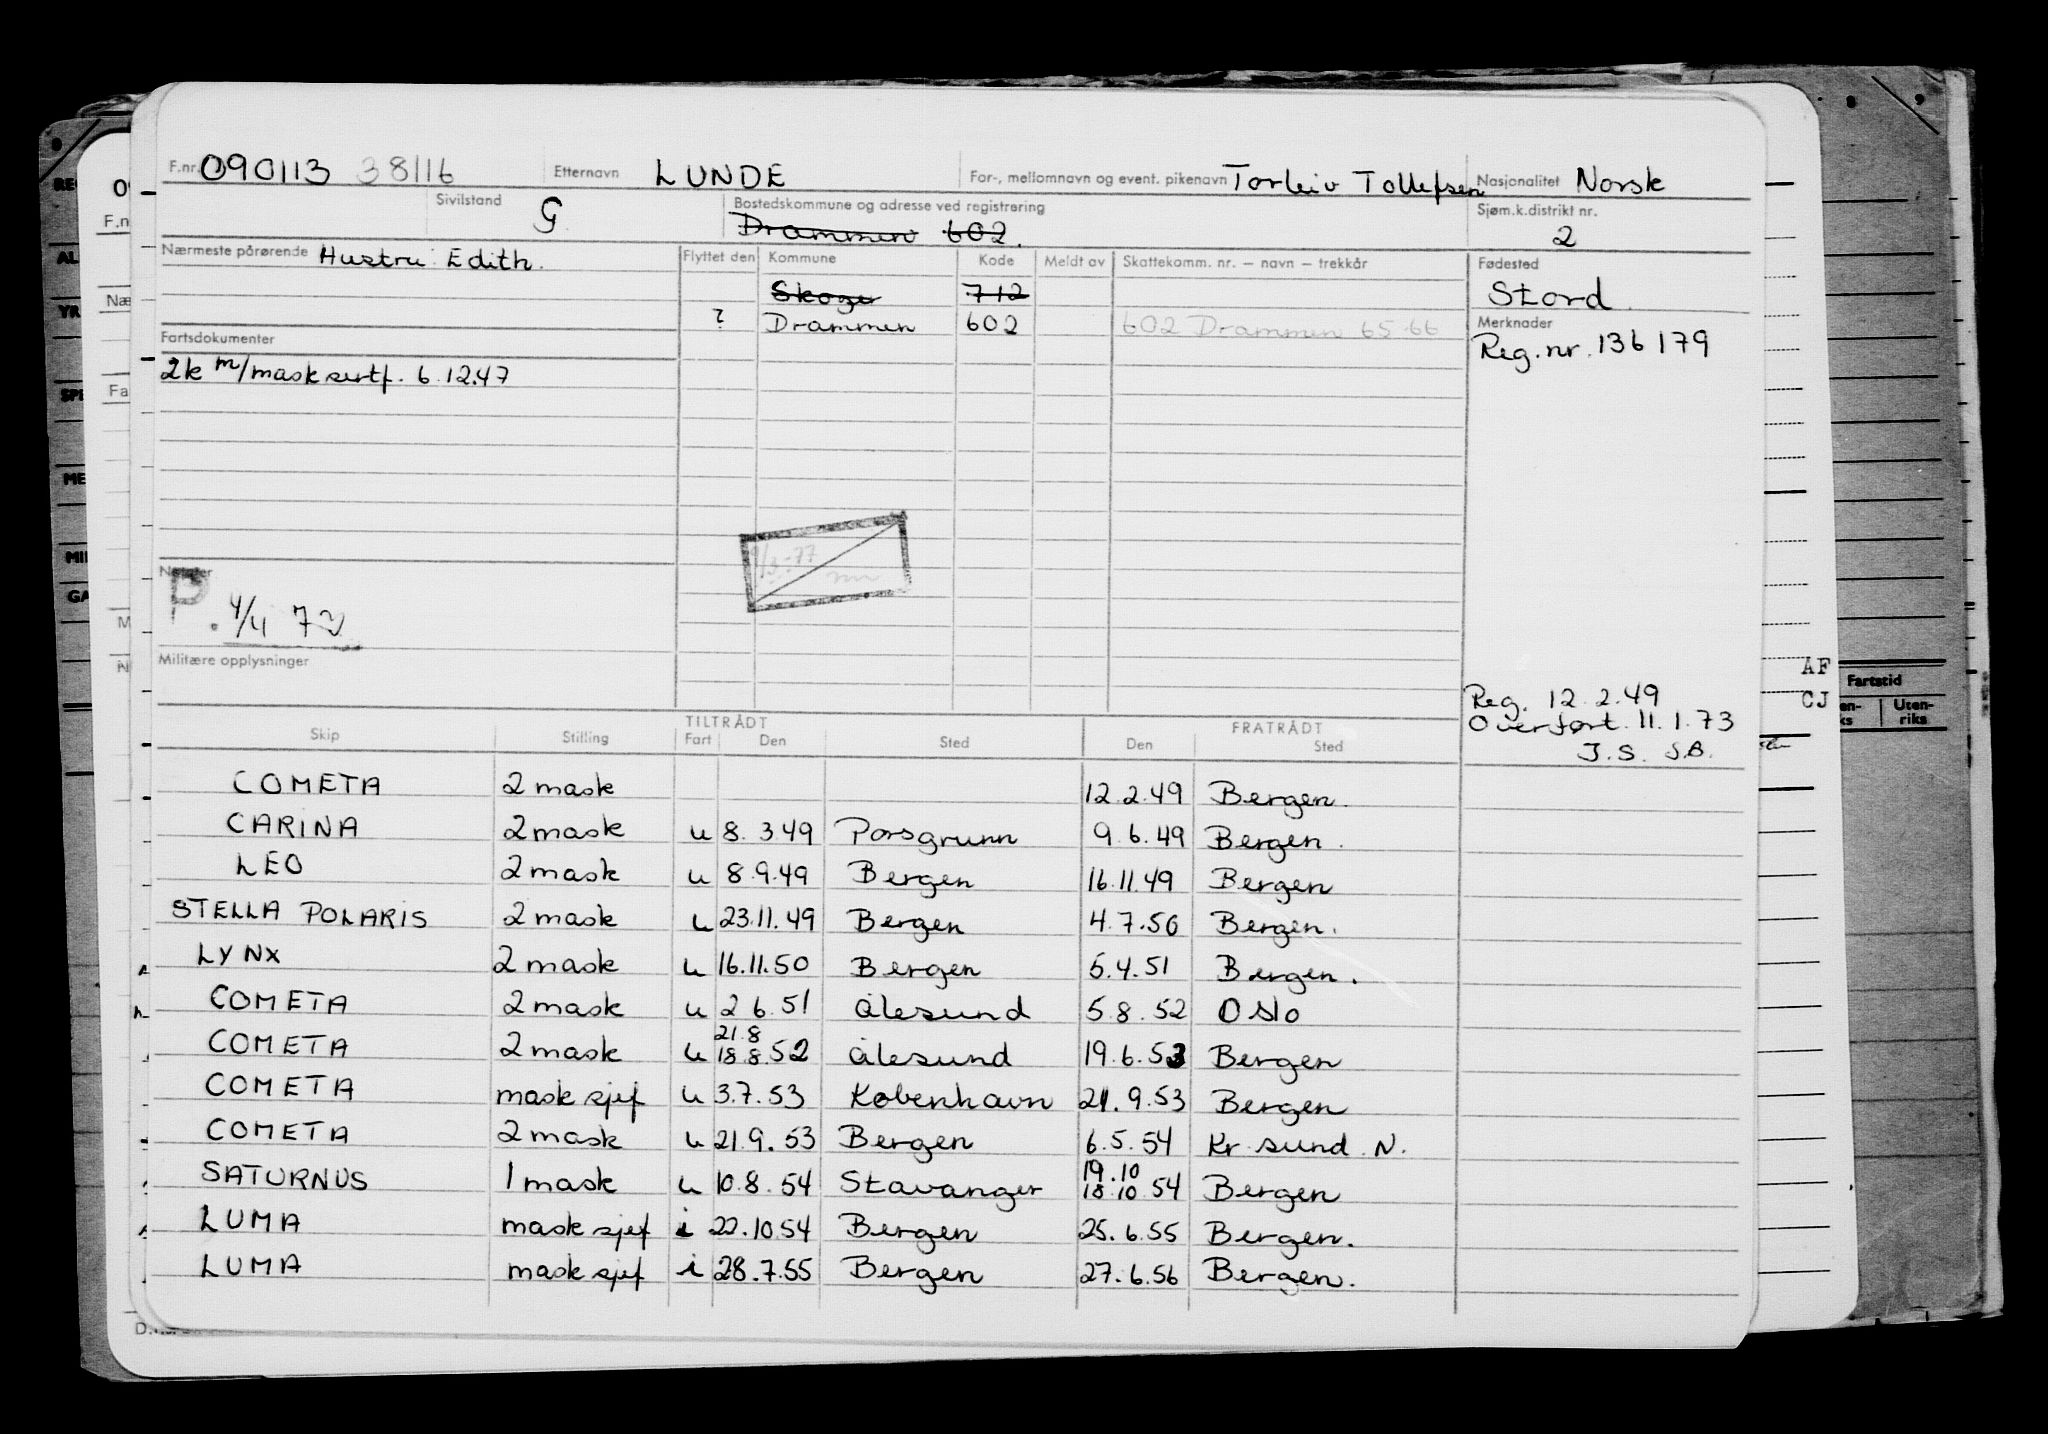 F.nr. 090113 38116 Etternavn LUNDE For-, mellomnavn og event. pikenavn Torleiv Tollefsen Nasjonalitet Norsk
Sivilstand G Bostedskommune og adresse ved registrering Drammen 602. Sjøm.k.distrikt nr. 2
Nærmeste pårørende Hustru Edith. Flyttet den Kommune Kode Meldt av Skattekomm. nr. – navn – trekkår Fødested
Skoger 712 Stord.
? Drammen 602 602 Drammen 65-66 Merknader
Fartsdokumenter Reg.nr. 136179
2k m/mask sertf. 6.12.47
1/3-77
Notater
P. 4/4 72
Militære opplysninger
Reg. 12.2.49
Overført. 11.1.73
J.S. S.B.
TILTRÅDT FRATRÅDT
Skip Stilling Fart Den Sted Den Sted
COMETA 2 mask 12.2.49 Bergen.
CARINA 2 mask u 8.3.49 Porsgrunn 9.6.49 Bergen.
LEO 2 mask u 8.9.49 Bergen 16.11.49 Bergen
STELLA POLARIS 2 mask u 23.11.49 Bergen 4.7.50 Bergen.
LYNX 2 mask u 16.11.50 Bergen 5.4.51 Bergen.
COMETA 2 mask u 2 6.51 Ålesund 5.8.52 Oslo
21.8
COMETA 2 mask u 18.8.52 Ålesund 19.6.53 Bergen
COMETA mask sjef u 3.7.53 København 21.9.53 Bergen
COMETA 2 mask u 21.9.53 Bergen 6.5.54 Kr.sund N.
19.10
SATURNUS 1 mask u 10.8.54 Stavanger 18.10.54 Bergen
LUMA mask sjef i 22.10.54 Bergen 25.6.55 Bergen.
LUMA mask sjef i 28.7.55 Bergen 27.6.56 Bergen.
AF
CJ
Fartstid
Uten-
riks